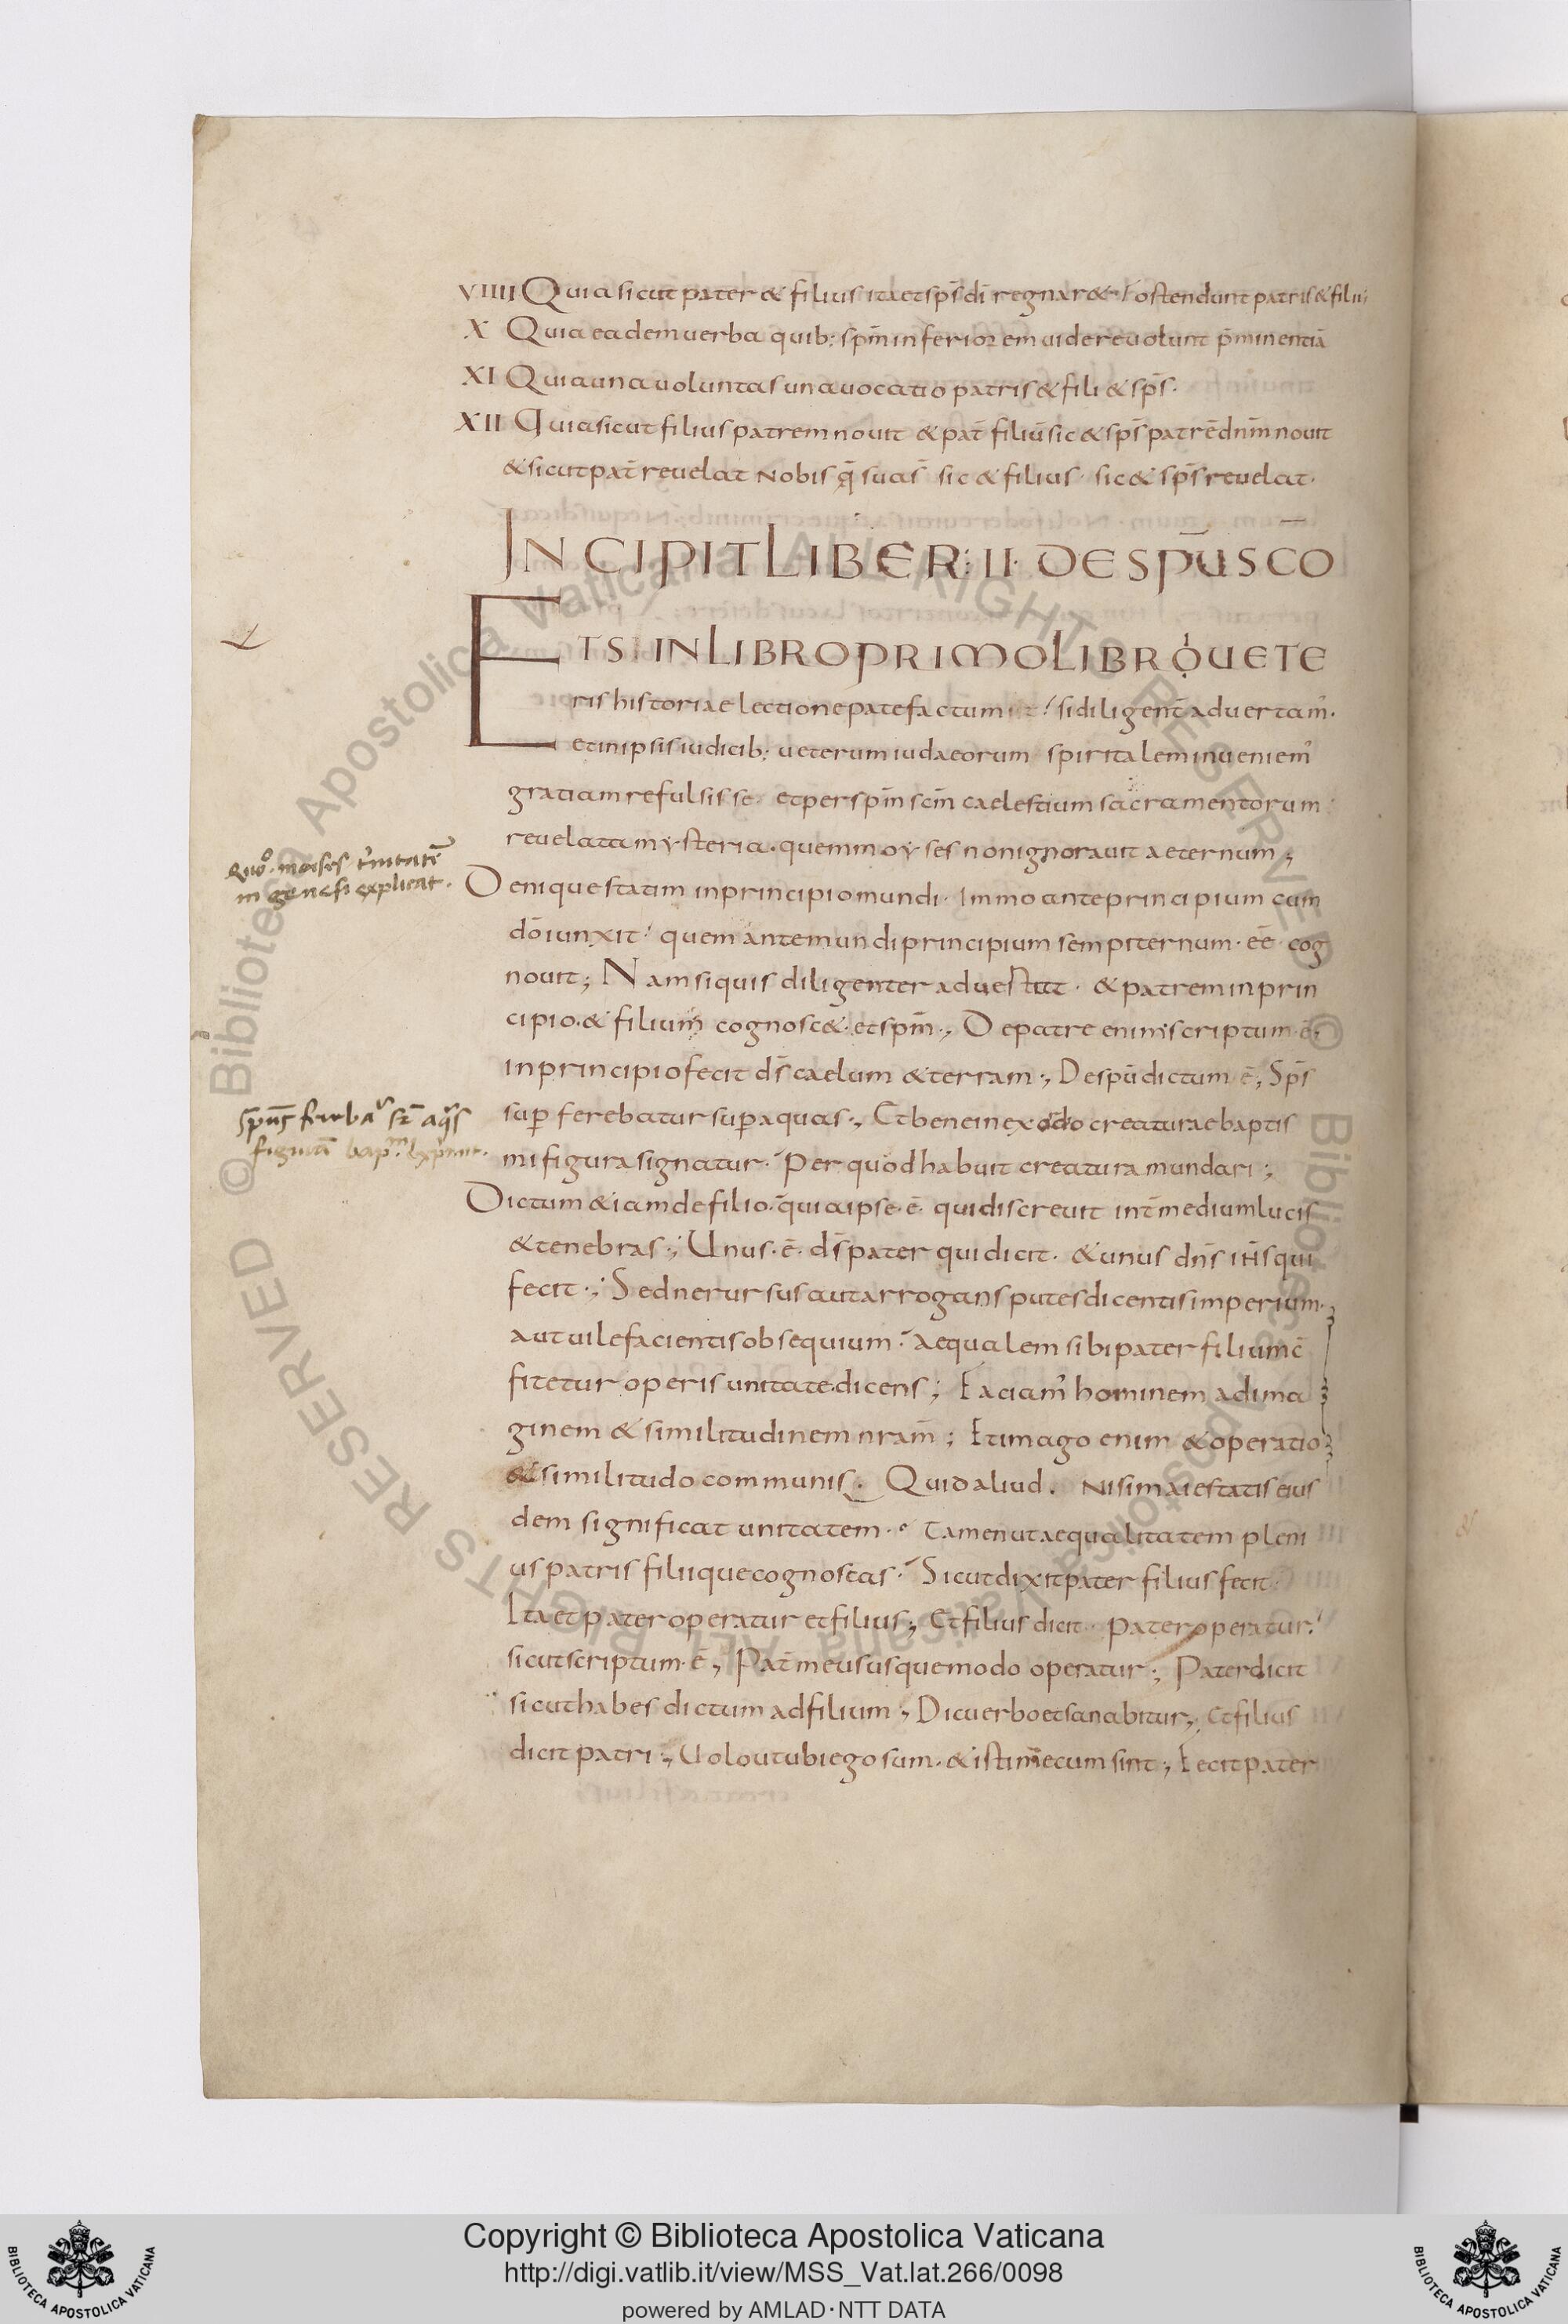 VIIII Quia sicut pater & filius ita et sp̄s dī regnar& ostendunt patris & filii
X Quia eadem uerba quib; sp̄m inferiorem uidere uolunt p̄minentiā
XI Quia una uoluntas una uocatio patris & fili & sp̄s.
XII Quia sicut filius patrem nouit & pat̄ filiū sic & sp̄s patrē dnm̄ nouit
& sicut pat̄ reuelat nobis q̄ sua s̄ sic & filius · sic & sp̄s reuelat·
INCIPIT LIBER : II · DE SPŪ SCŌ
ETSI IN LIBRO PRIMO LIBRO UETE
ris historiae lectione patefactum si diligent̄ aduertam'.
et in ipsis iudicib; ueterum iudaeorum spiritalem inueniem'
gratiam refulsisse· et per sp̄m sc̄m caelestium sacramentorum
reuelata mysteria· quem moyses non ignorauit aeternum;
Quō. moises t'initatē
in genesi explicat.
Denique statim in principio mundi· Immo ante principium cum
dō iunxit· quem ante mundi principium sempiternum· eē· cog
nouit; Nam si quis diligenter aduertit · & patrem in prin
cipio· & filium cognosc& · et sp̄m·, De patre enim scriptum· ē·
in principio fecit d̄s caelum & terram·, De spū dictum ē; Sp̄s
sp̄us
sup̄ ferebatur sup̄ aquas·, Et bene in exodo creaturae baptis
mi figura signatur· Per quod habuit creatura mundari;
Dictum & iam de filio· quia ipse· ē· qui discreuit int̄ medium lucis
& tenebras·; Unus· ē· d̄s pater qui dicit· & unus dn̄s ih̄s qui
fecit·; Sed ne rursus aut arrogans putes dicentis imperium·
aut uile facientis obsequium· aequalem sibi pater filium c̄
fitetur operis unitate· dicens; Faciam' hominem ad ima
ginem & similitudinem nram̄; Et imago enim & operatio
& similitudo communis. Quid aliud. Nisi maiestatis eius
dem significat unitatem· Tamen ut aequalitatem pleni
us patris filiique cognoscas· Sicut dixit pater filius fecit·
Ita et pater operatur et filius; Et filius dicit· Pater operatur·
sicut scriptum· ē, Pat̄ meus usque modo operatur·; Pater dicit
sicut habes dictum ad filium·, Dic uerbo et sanabitur, Et filius
dicit patri·, Uolo ut ubi ego sum· & isti mecum sint·, Fecit pater
Copyright © Biblioteca Apostolica Vaticana
http://digi.vatlib.it/view/MSS_Vat.lat.266/0098
powered by AMLAD·NTT DATA
BIBLIOTECA APOSTOLICA VATICANA
BIBLIOTECA APOSTOLICA VATICANA
© Biblioteca Apostolica Vaticana ALL RIGHTS RESERVED
© Biblioteca Apostolica Vaticana ALL RIGHTS RESERVED